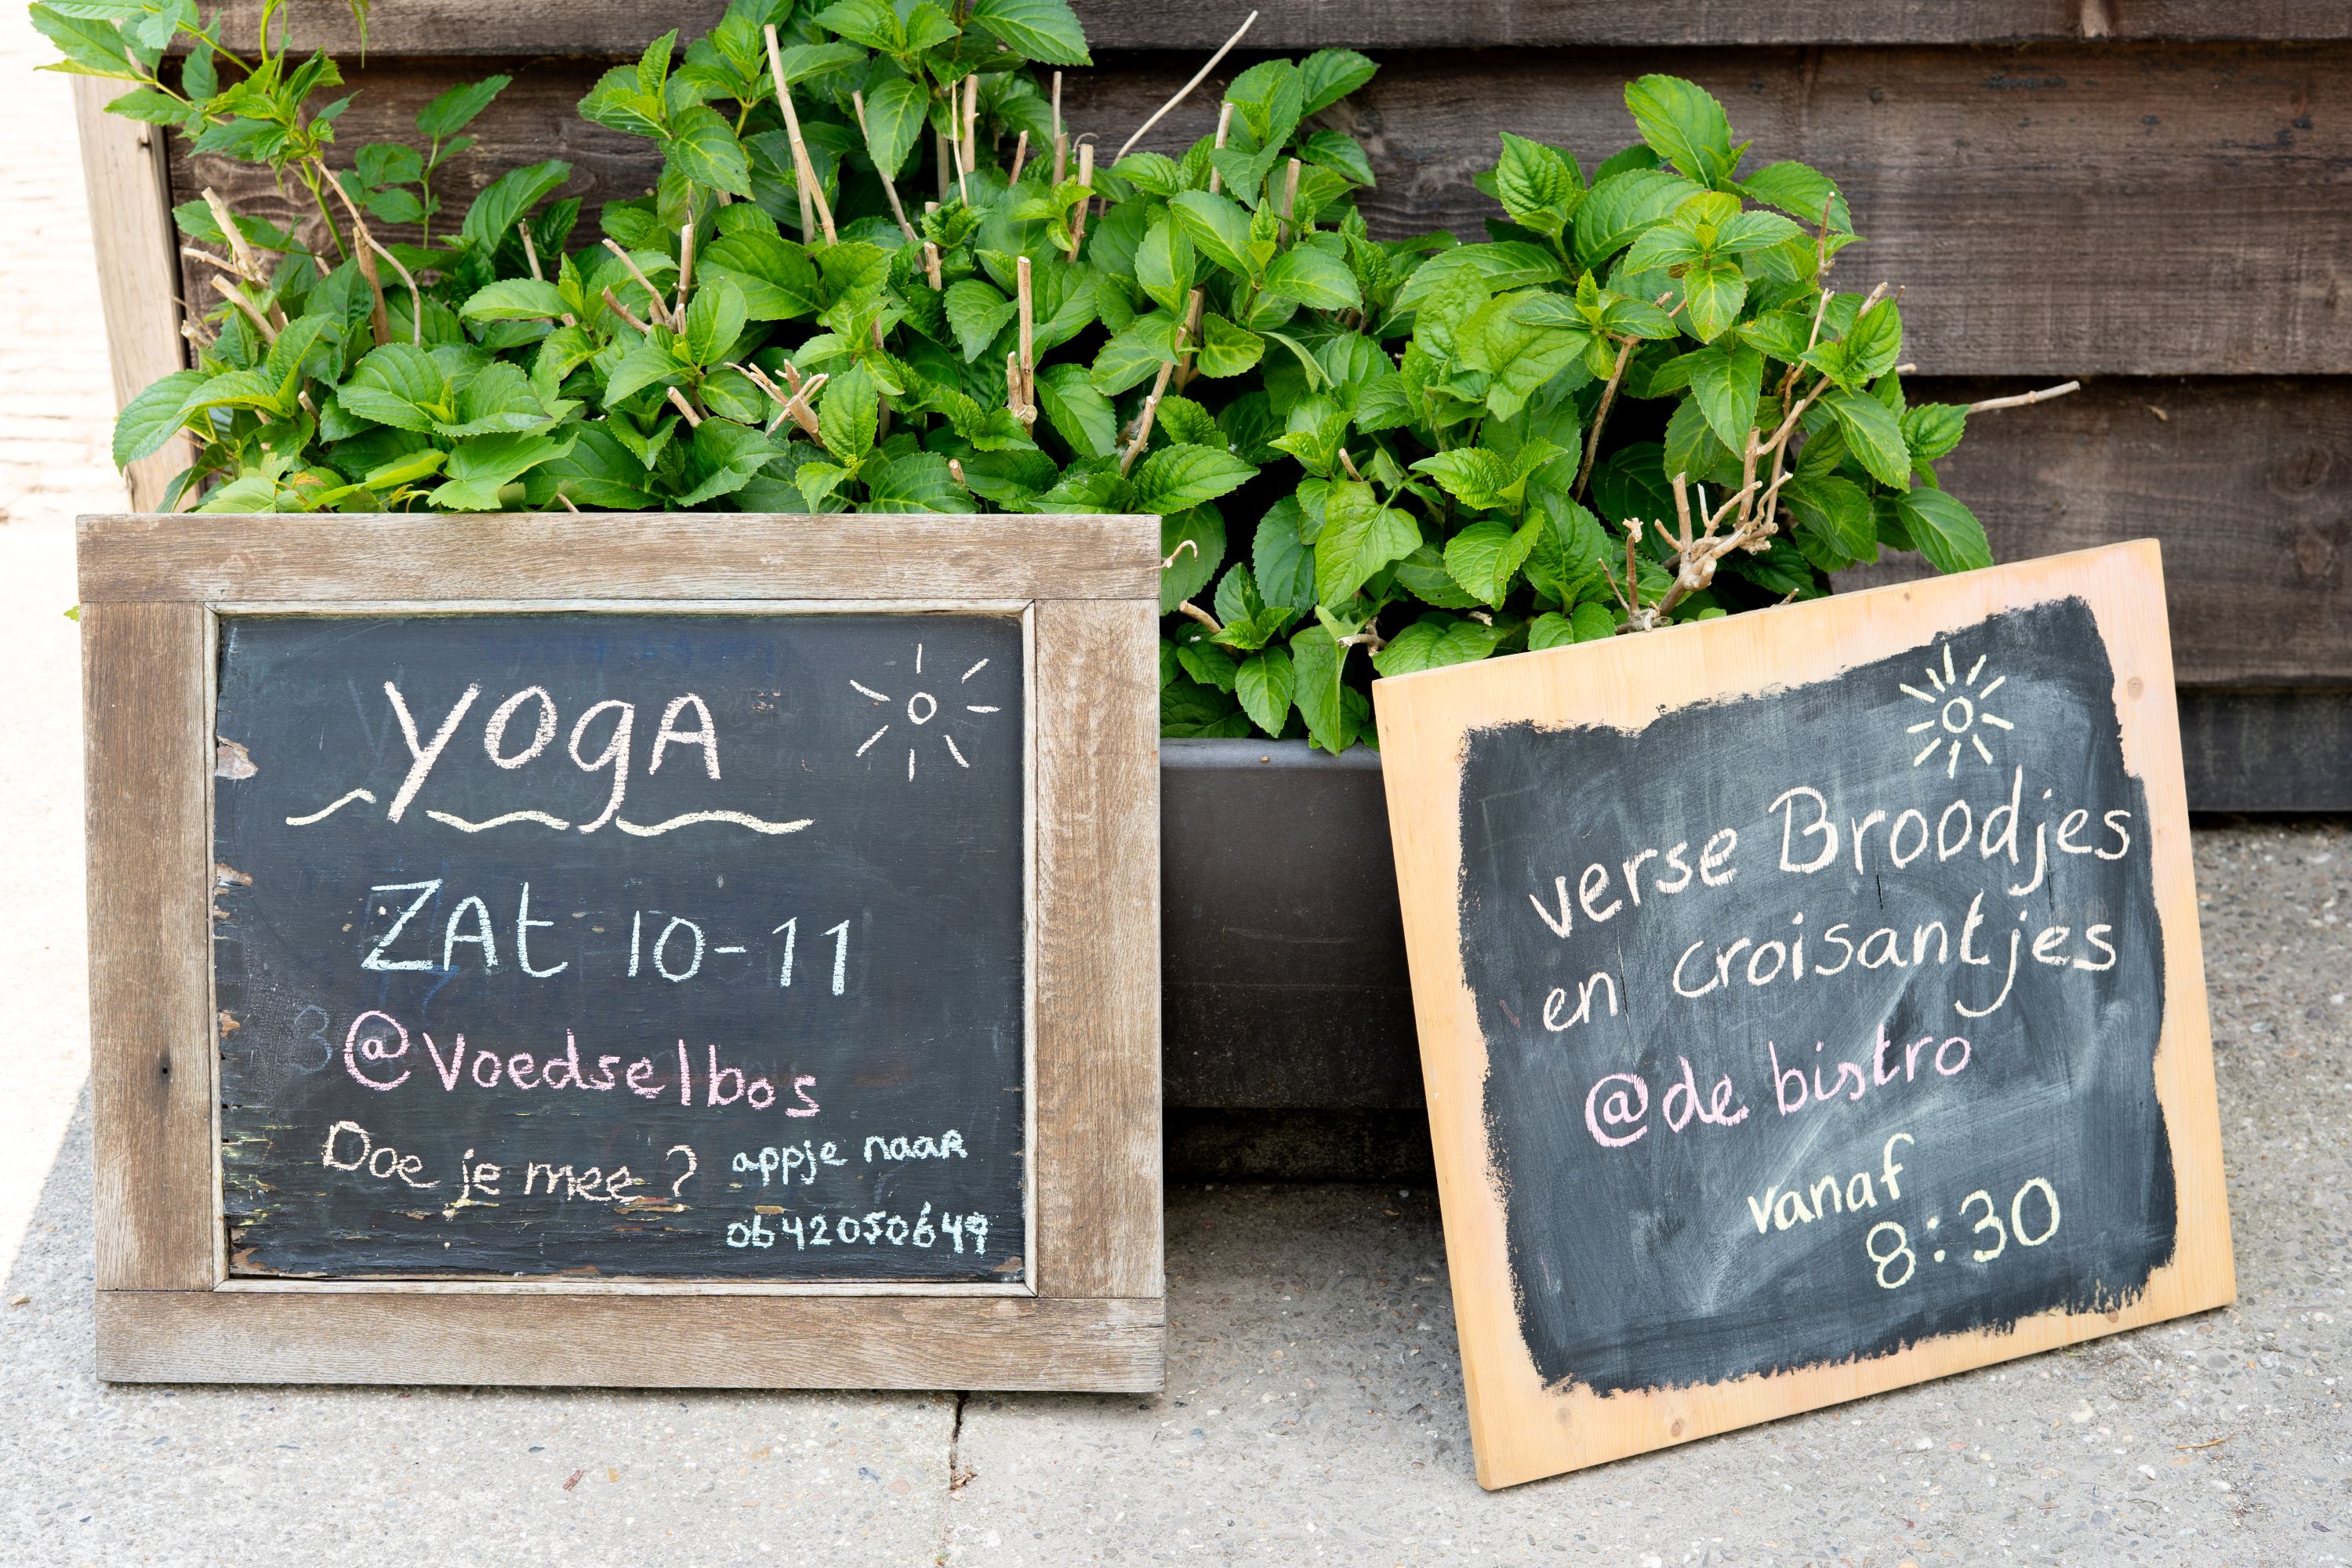 yogA
ZAt 10-11
@Voedselbos
Doe je mee?
appje naar
0642050649
verse Broodjes
en croisantjes
@de bistro
vanaf
8:30